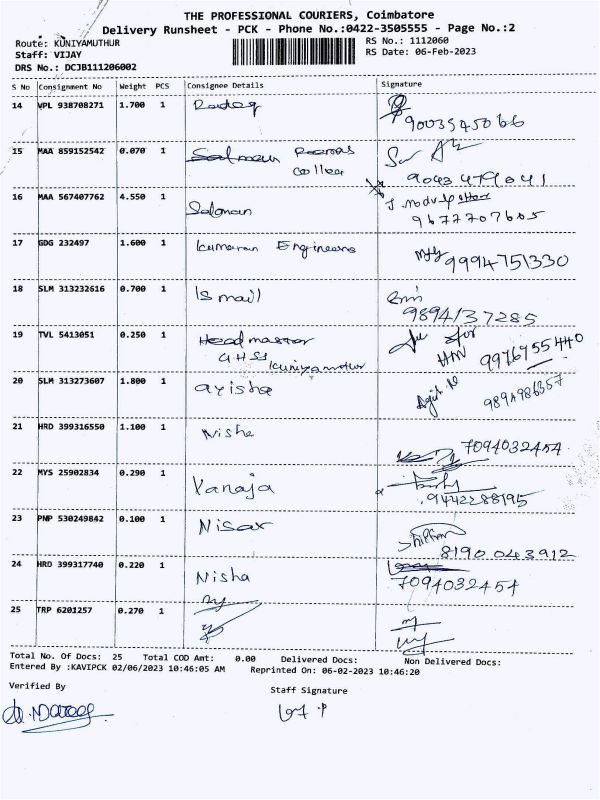 THE PROFESSIONAL COURIERS, Coimbatore
Delivery Runsheet - PCK - Phone No.:0422-3505555 - Page No.:2
Route: KUNIYAMUTHUR RS No.: 1112060
Staff: VIJAY RS Date: 06-Feb-2023
DRS No.: DCJB111206002
S No Consignment No Weight PCS Consignee Details Signature
14 VPL 938708271 1.700 1
15 MAA 859152542 0.070 1
9043479041
16 MAA 567407762 4.550 1 Solomon
9677707605
17 GDG 232497 1.600 1 Kumaran Engineers 9994751330
18 SLM 313232616 0.700 1 Ismail
9894137285
19 TVL 5413051 0.250 1 Head master
GHSS Kuniyamuthur 9976755440
20 SLM 313273607 1.800 1 ayisha
21 HRD 399316550 1.100 1 Nisha 7094032454
22 MYS 25902834 0.290 1 Vanaja
9442288195
23 PNP 530249842 0.100 1 Nisar
8190043912
24 HRD 399317740 0.220 1 Nisha
7094032454
25 TRP 6201257 0.270 1
Total No. Of Docs: 25 Total COD Amt: 0.00 Delivered Docs: Non Delivered Docs:
Entered By :KAVIPCK 02/06/2023 10:46:05 AM Reprinted On: 06-02-2023 10:46:20
Verified By Staff Signature